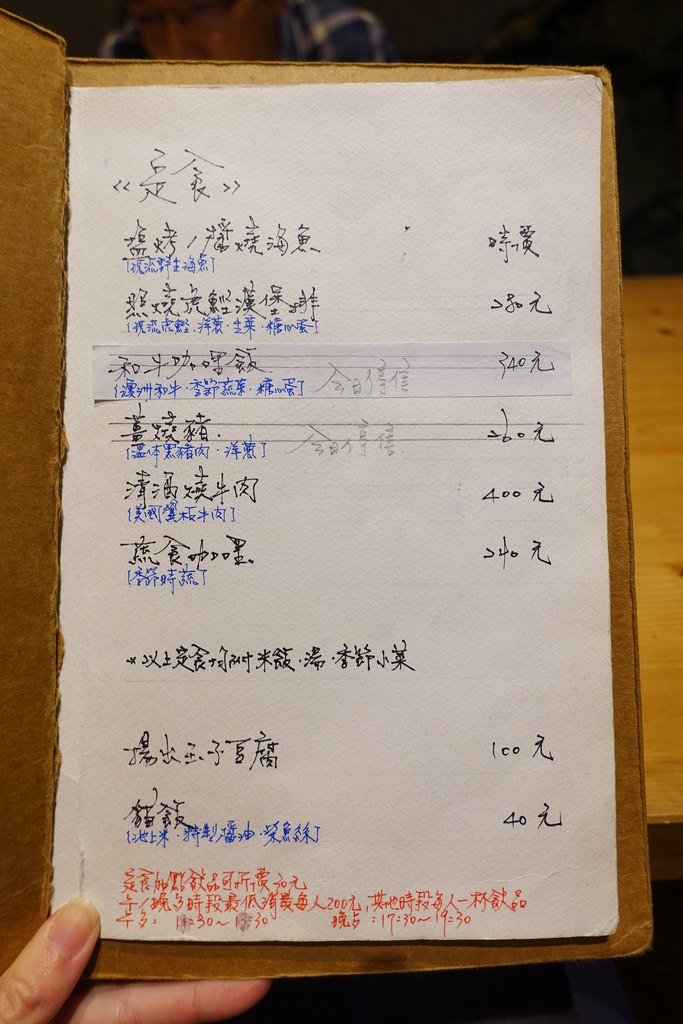 《定食》
塩烤/醬燒海魚 時價
[現流野生海魚]
照燒虎鰹漢堡排 280元
[現流虎鰹·洋蔥·生菜·糖心蛋]
和牛咖哩飯 340元
[澳洲和牛·季節蔬菜·糖心蛋] 今日停售
薑燒豬 260元
[溫体黑豬肉·洋蔥] 今日停售
清酒燒牛肉 400元
[美國翼板牛肉]
蔬食咖哩 240元
[季節時蔬]
※以上定食均附米飯·湯·季節小菜
揚出玉子豆腐 100元
貓飯 40元
[池上米·特製醬油·柴魚絲]
定食加點飲品可折價20元
午/晚餐時段最低消費每人200元,其他時段每人一杯飲品
午餐: :30~ :30 晚餐:17:30~19:30